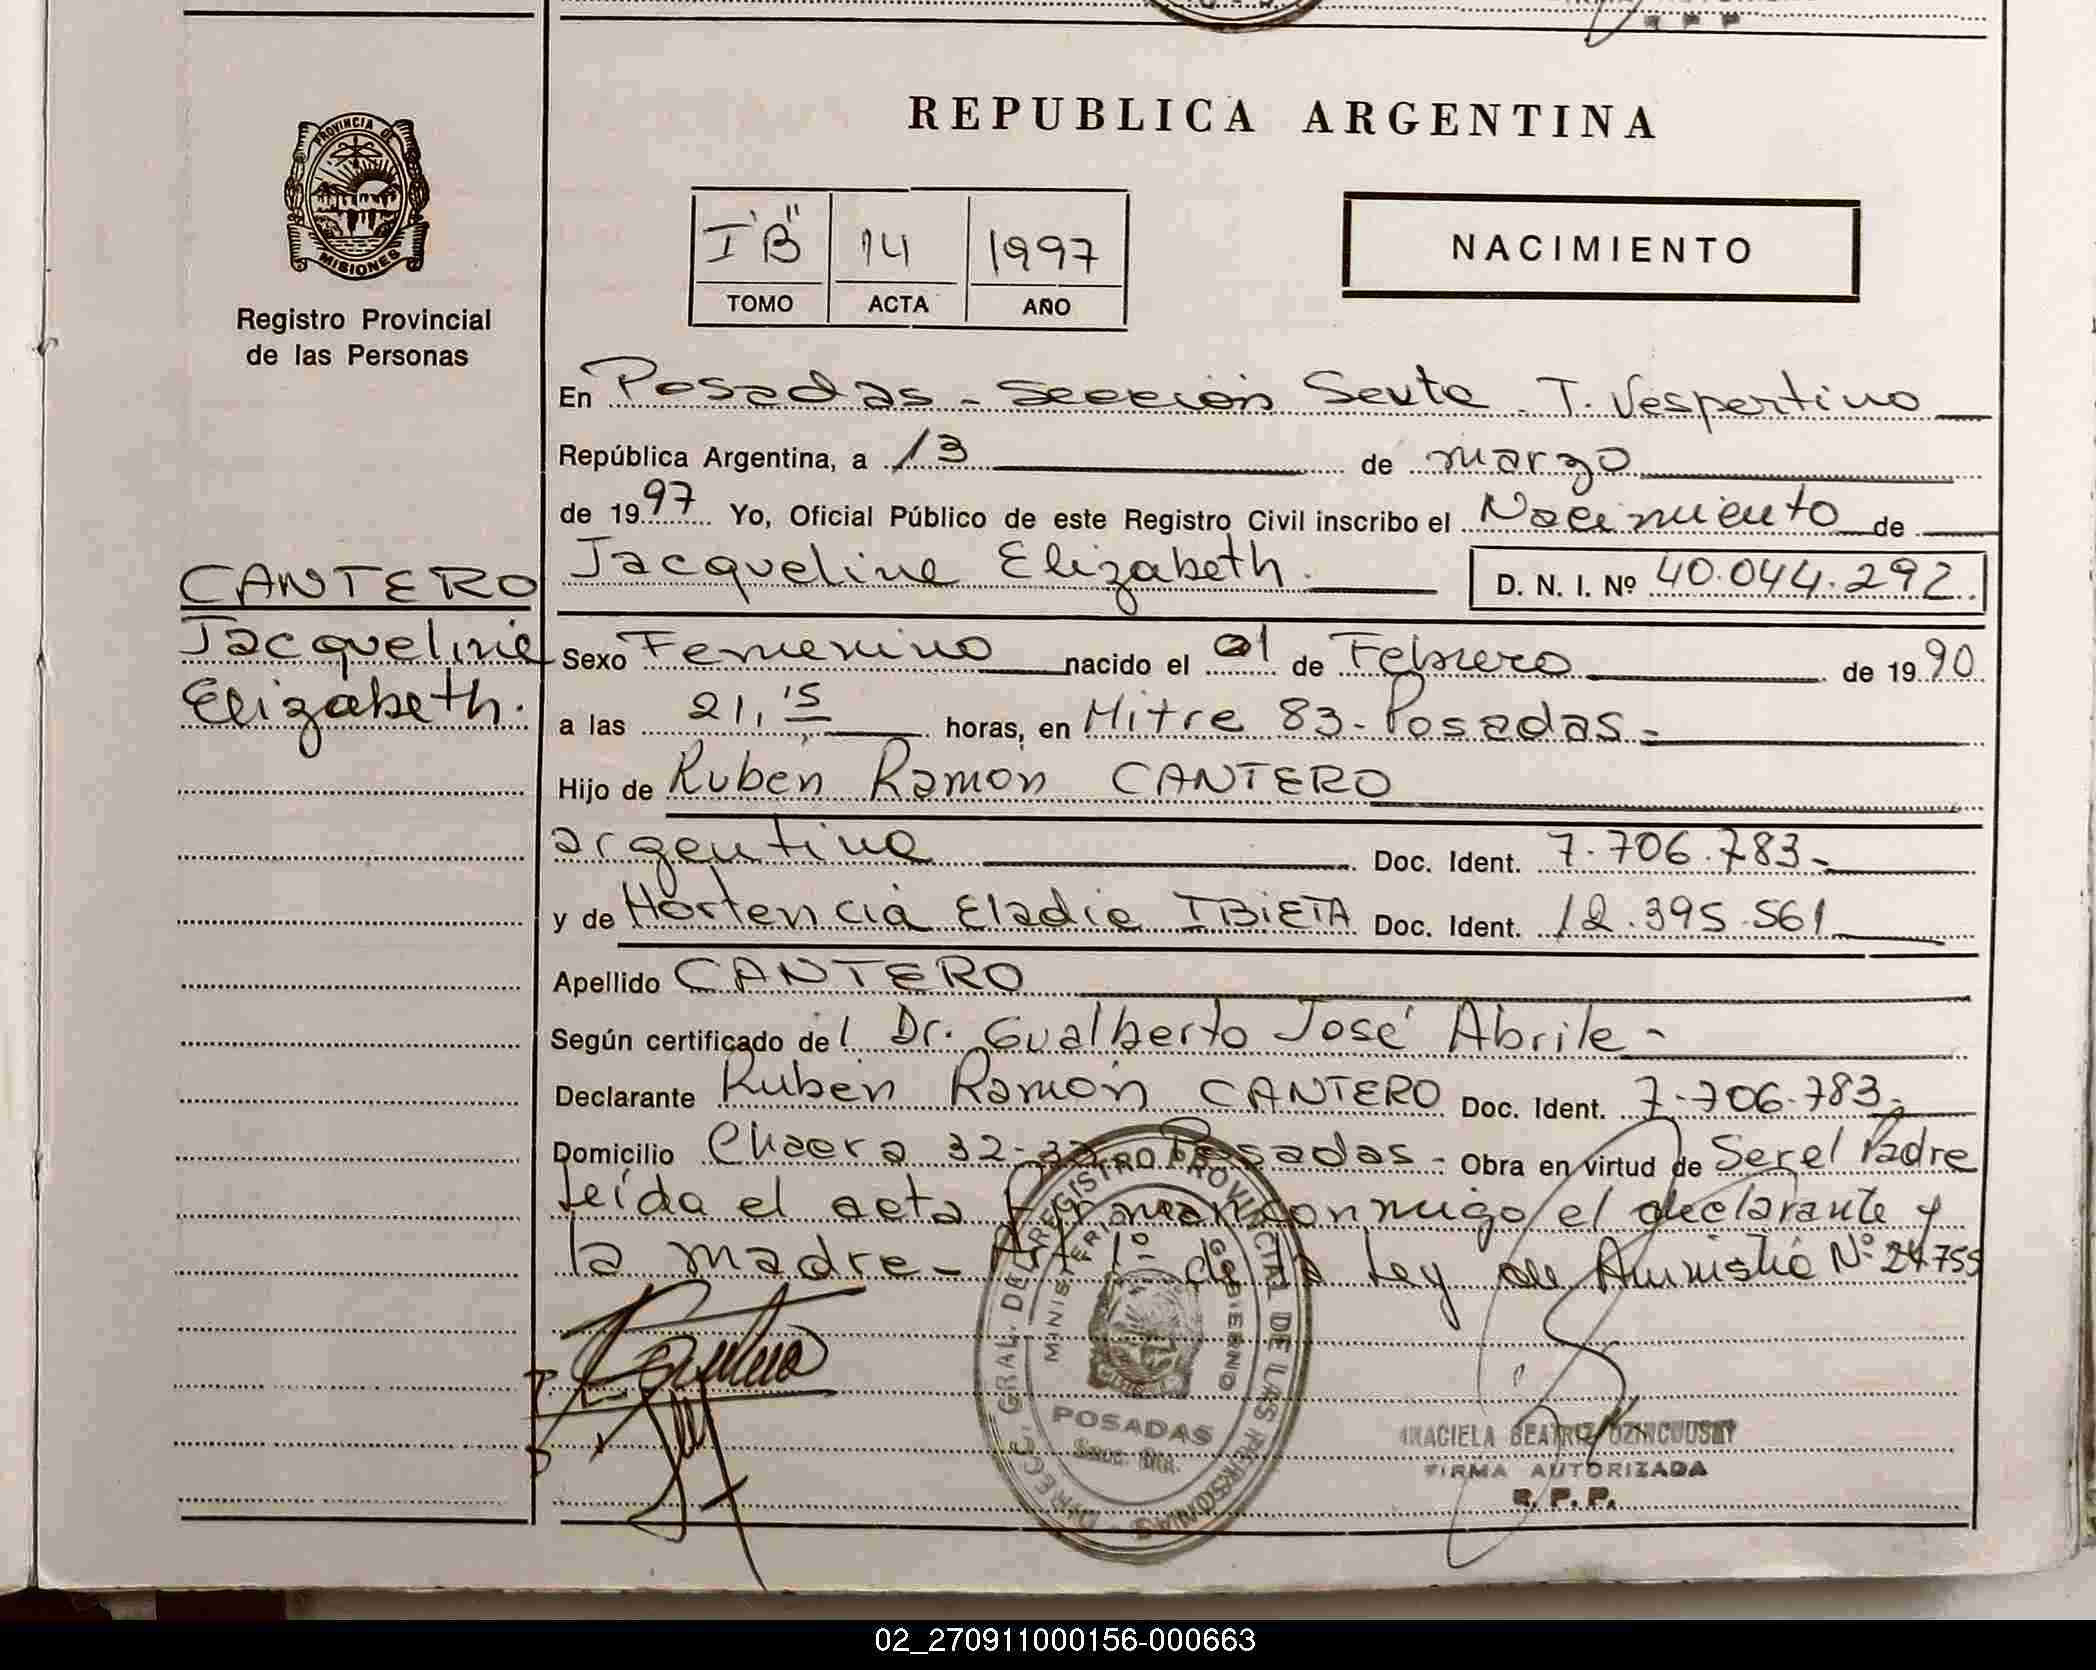 PROVINCIA DE
MISIONES
Registro Provincial
de las Personas
CANTERO
Jacqueline
Elizabeth.
REPUBLICA ARGENTINA
I "B" 14 1997
TOMO ACTA AÑO
NACIMIENTO
En Posadas - Sección Sexta - T. Vespertino
República Argentina, a 13 de marzo
de 1997 Yo, Oficial Público de este Registro Civil inscribo el Nacimiento de
Jacqueline Elizabeth. D. N. I. Nº 40.044.292.
Sexo Femenino nacido el 01 de Febrero de 1990
a las 21,15 horas, en Mitre 83 - Posadas -
Hijo de Rubén Ramón CANTERO
argentino Doc. Ident. 7.706.783 -
y de Hortencia Eladia IBIETA Doc. Ident. 12.395.561
Apellido CANTERO
Según certificado del Dr. Gualberto José Abrile -
Declarante Rubén Ramón CANTERO Doc. Ident. 7.706.783 -
Domicilio Chacra 32-33 Posadas - Obra en virtud de Ser el Padre
Leída el acta firman conmigo el declarante y
la madre - Art 1º de la Ley de Amnistía Nº 24.755
DIRECC. GRAL. DEL REGISTRO PROVINCIAL DE LAS PERSONAS
MINISTERIO GOBIERNO
POSADAS
BEATRIZ
FIRMA AUTORIZADA
R. P. P.
02_270911000156-000663